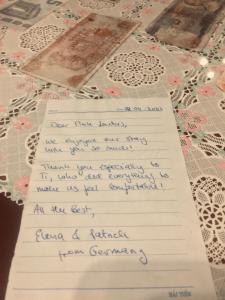 Dear Pink Ladies,
We enjoyed our stay
with you so much!
Thank you especially to
Ti, who did everything to
make us feel comfortable!
All the Best,
Elena & Patrick
from Germany
HẢI TIẾN